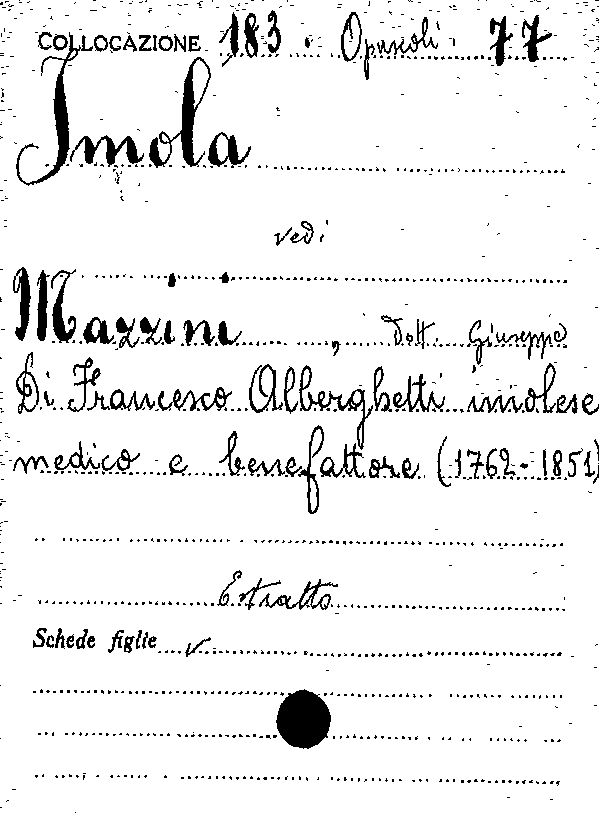 COLLOCAZIONE 183 . Opuscoli . 77
Imola
vedi
Mazzini , dott. Giuseppe
Di Francesco Alberghetti imolese
medico e benefattore (1762-1851)
Estratto
Schede figlie